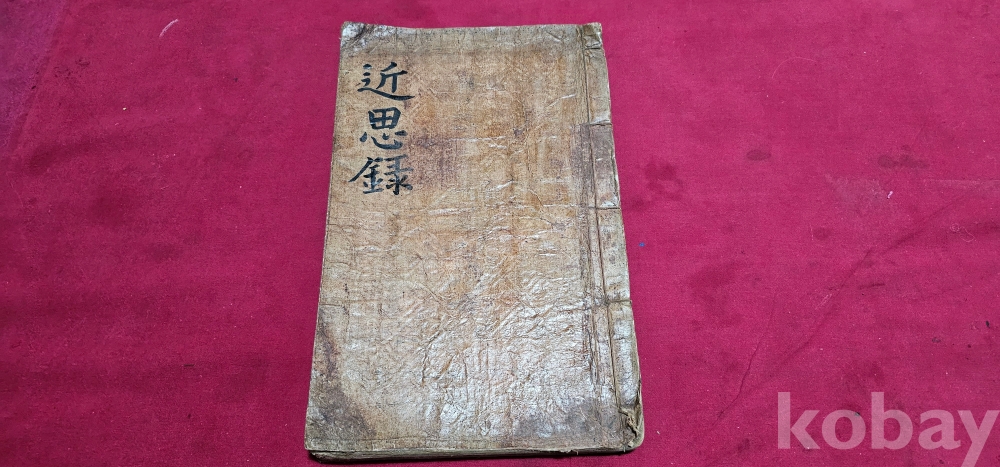 近思録
kobay